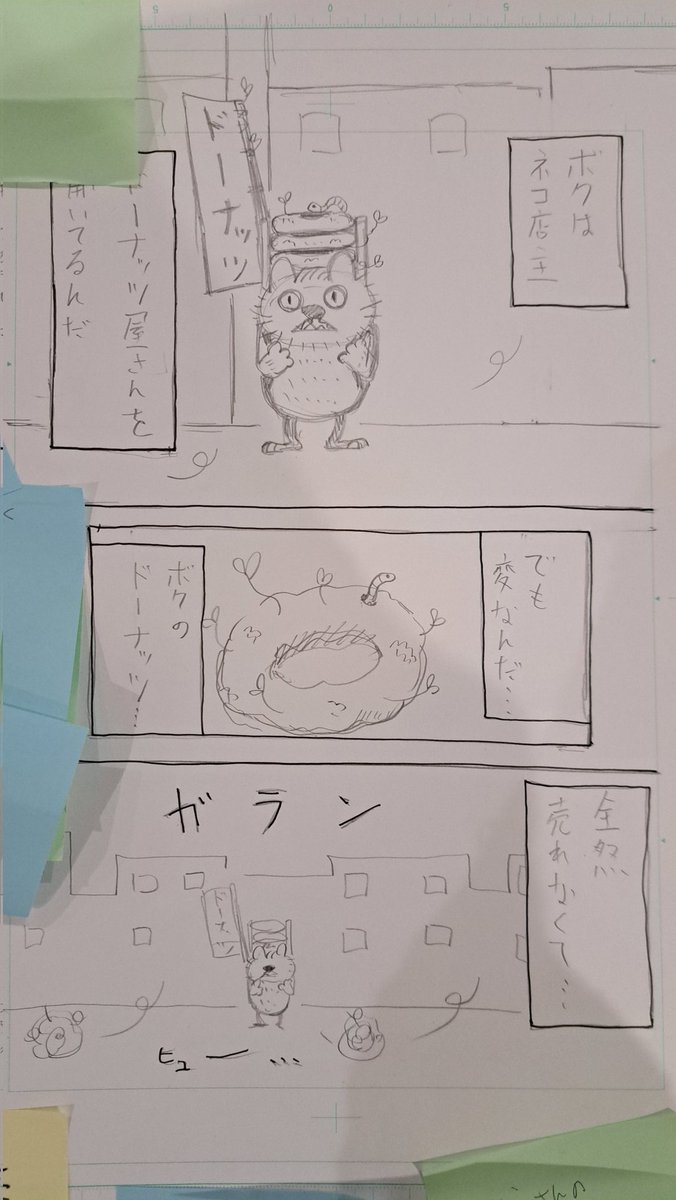 ボクは
ネコ店主
ドーナッツ
ドーナッツ屋さんを
開いてるんだ
でも
変なんだ…
ボクの
ドーナッツ…
全然
売れなくて…
ガラン
ドーナッツ
ヒュー…
さんの